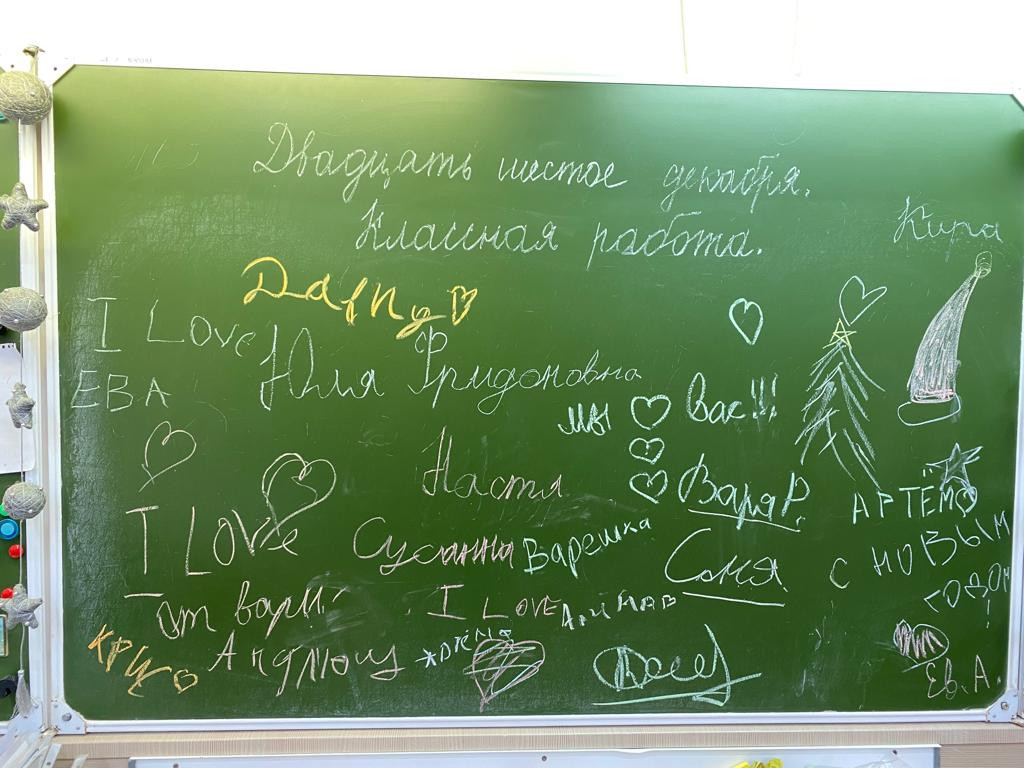 Двадцать шестое декабря.
Классная работа.
Кира
I Love
ЕВА
Юля Фридоновна
мы Вас!!!
Настя
ВаряР.
АРТЁМ
I LOVe
Сусанна
Варешка
С НОВЫМ
ГОДОМ
от Вари
I LOVE
КРИС
Ев.А.